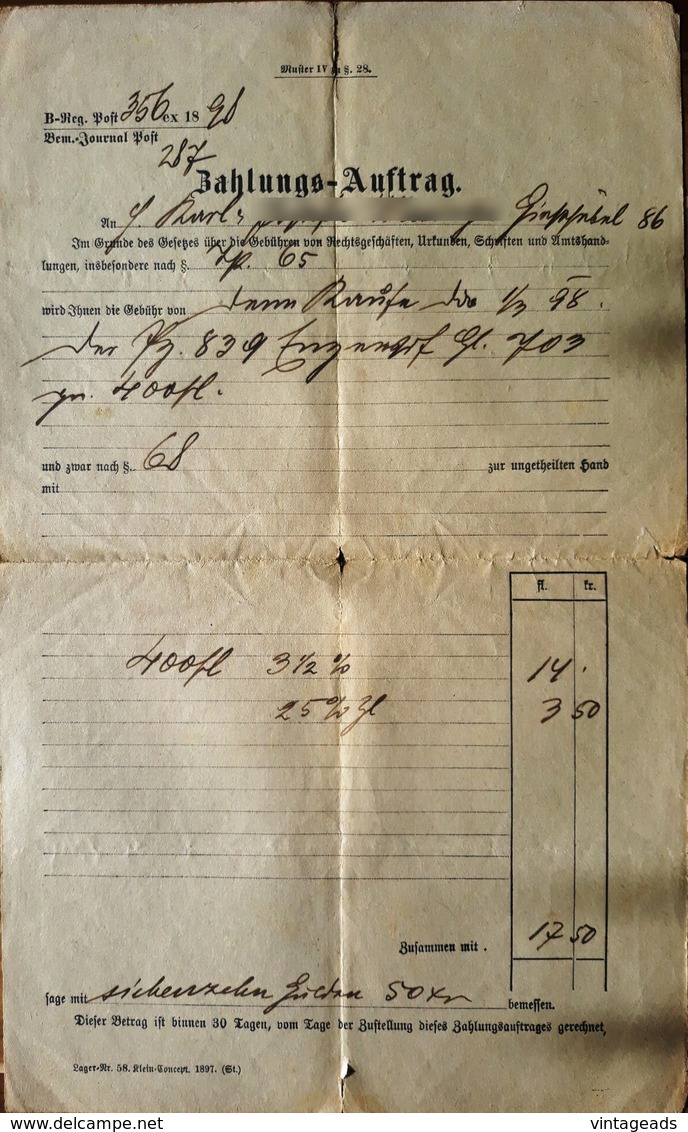 Muster IV zu §. 28.
B-Reg. Post 356 ex 1898
Bem.-Journal Post
287
Zahlungs-Auftrag.
An H. Karl Gießhübel 86
Im Grunde des Gesetzes über die Gebühren von Rechtsgeschäften, Urkunden, Schriften und Amtshand-
lungen, insbesondere nach §. Tp. 65
wird Ihnen die Gebühr von dem Kaufe dto 1/3 98.
der Pz. 839 Enzersdf Gl. 703
pr. 400 fl.
und zwar nach §. 68 zur ungetheilten Hand
mit
fl. kr.
400 fl 3 1/2 % 14 .
25% Zl 3 50
Zusammen mit . 17 50
sage mit siebenzehn Gulden 50 xr bemessen.
Dieser Betrag ist binnen 30 Tagen, vom Tage der Zustellung dieses Zahlungsauftrages gerechnet,
Lager-Nr. 58. Klein-Concept. 1897. (St.)
vintageads